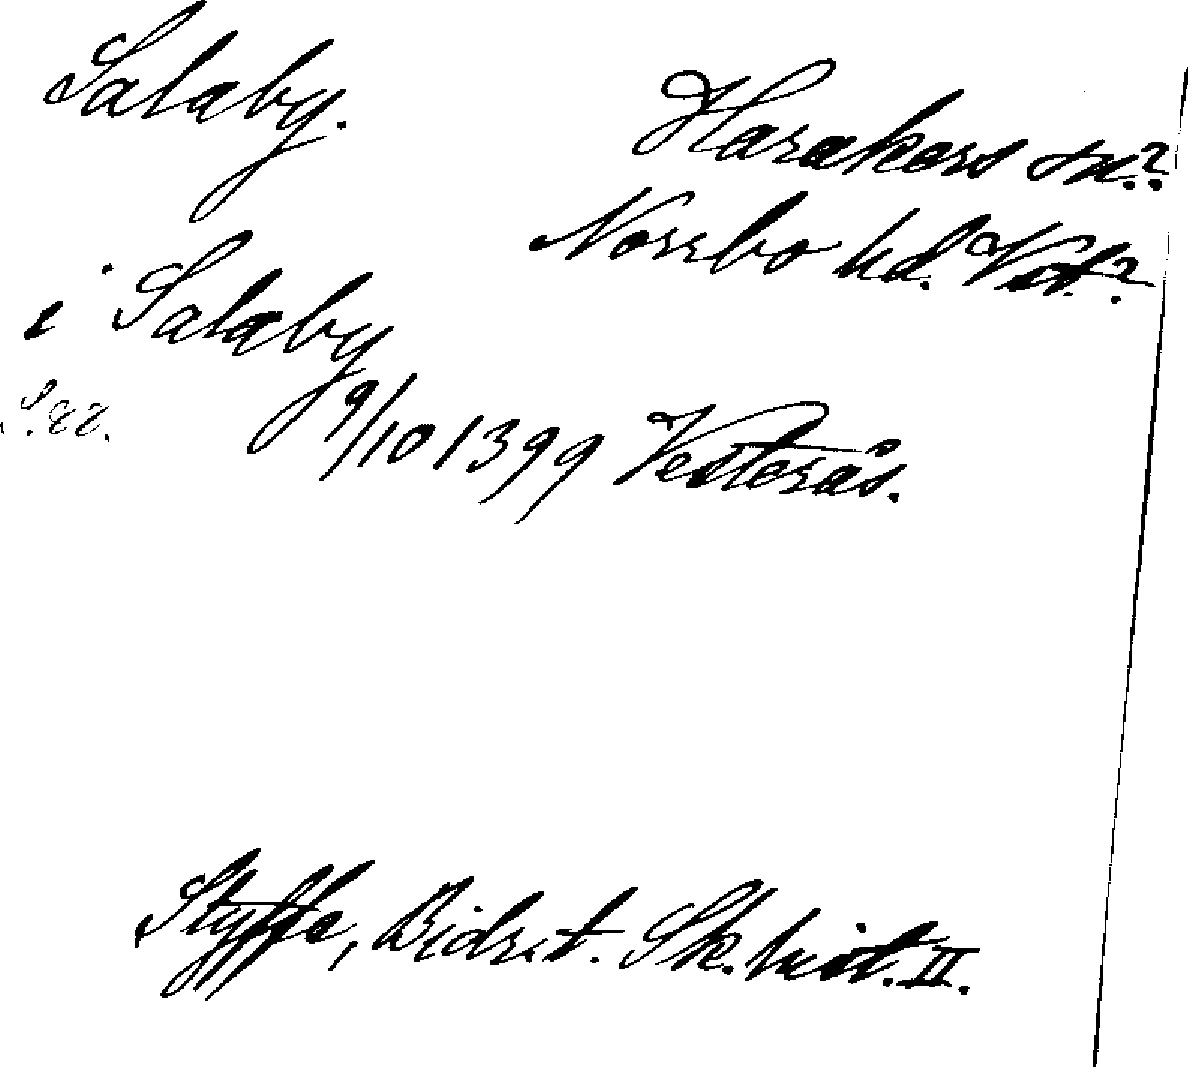 Salaby.
Harakers sn.?
Norrbo hd. Vstl.?
i Salaby
S. 22.
9/10 1399 Vesterås.
Styffe, Bidr. t. Sk. hist. II.